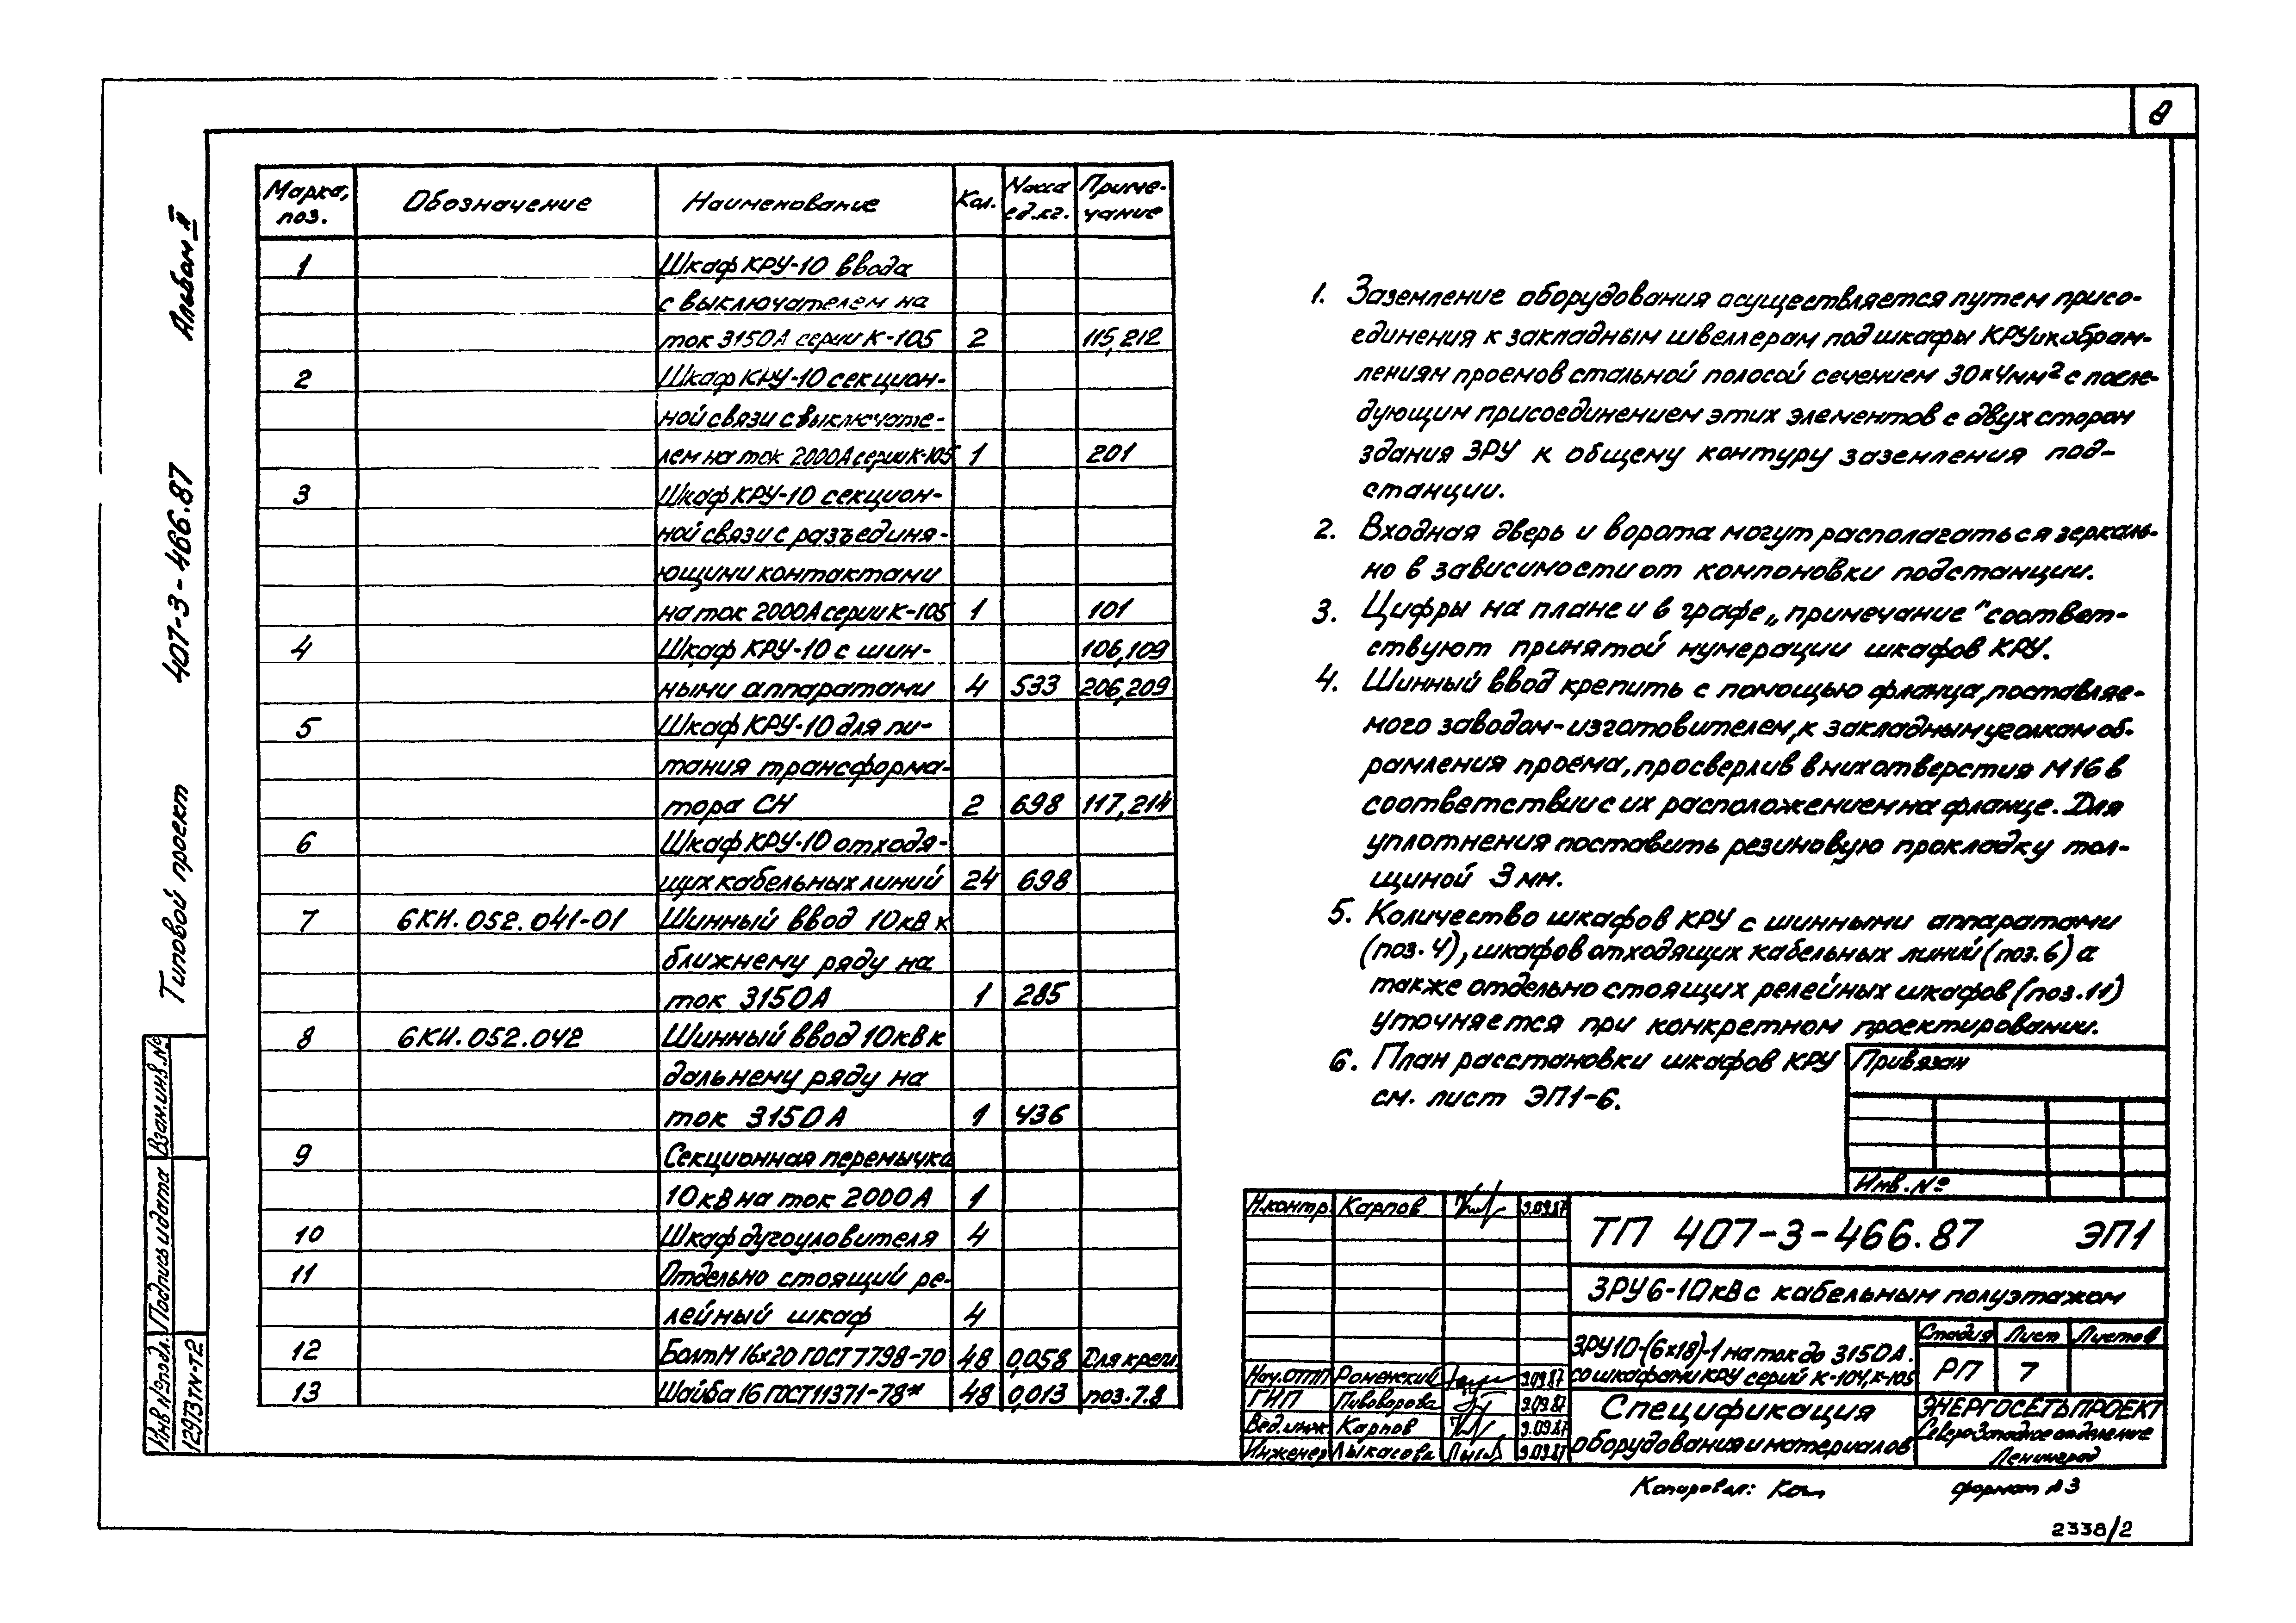 8
Альбом II
407-3-466.87
Типовой проект
Взам.инв.№
Подпись и дата
Инв.№подл.
12973ТМ-Т2
Марка, поз. Обозначение Наименование Кол. Масса ед.кг. Приме-чание
1 Шкаф КРУ-10 ввода
с выключателем на
ток 3150А серии К-105 2 115,212
2 Шкаф КРУ-10 секцион-
ной связи с выключате-
лем на ток 2000А серии К-105 1 201
3 Шкаф КРУ-10 секцион-
ной связи с разъединя-
ющими контактами
на ток 2000А серии К-105 1 101
4 Шкаф КРУ-10 с шин- 106,109
ными аппаратами 4 533 206,209
5 Шкаф КРУ-10 для пи-
тания трансформа-
тора СН 2 698 117,214
6 Шкаф КРУ-10 отходя-
щих кабельных линий 24 698
7 6КИ.052.041-01 Шинный ввод 10кВ к
ближнему ряду на
ток 3150А 1 285
8 6КИ.052.042 Шинный ввод 10кВ к
дальнему ряду на
ток 3150А 1 436
9 Секционная перемычка
10кВ на ток 2000А 1
10 Шкаф дугоуловителя 4
11 Отдельно стоящий ре-
лейный шкаф 4
12 Болт М16х20 ГОСТ 7798-70 48 0,058 Для креп.
13 Шайба 16 ГОСТ 11371-78* 48 0,013 поз.7.8
1. Заземление оборудования осуществляется путем присо-
единения к закладным швеллерам под шкафы КРУ и к обрам-
лениям проемов стальной полосой сечением 30х4мм² с после-
дующим присоединением этих элементов с двух сторон
здания ЗРУ к общему контуру заземления под-
станции.
2. Входная дверь и ворота могут располагаться зеркаль-
но в зависимости от компоновки подстанции.
3. Цифры на плане и в графе „примечание" соответ-
ствуют принятой нумерации шкафов КРУ.
4. Шинный ввод крепить с помощью фланца, поставляе-
мого заводом-изготовителем, к закладным уголкам об-
рамления проема, просверлив в них отверстия М16 в
соответствии с их расположением на фланце. Для
уплотнения поставить резиновую прокладку тол-
щиной 3мм.
5. Количество шкафов КРУ с шинными аппаратами
(поз.4), шкафов отходящих кабельных линий (поз.6) а
также отдельно стоящих релейных шкафов (поз.11)
уточняется при конкретном проектировании.
6. План расстановки шкафов КРУ
см. лист ЭП1-6.
Привязан
Инв.№
Н.контр. Карпов 9.09.87
ТП 407-3-466.87 ЭП1
ЗРУ 6-10кВ с кабельным полуэтажом
ЗРУ10-(6х18)-1 на ток до 3150А.
со шкафами КРУ серий К-104, К-105
Стадия Лист Листов
РП 7
Нач.ОТП Роменский 9.09.87
ГИП Пивоварова 9.09.87
Вед.инж. Карпов 9.09.87
Инженер Лыкасова 9.09.87
Спецификация
оборудования и материалов
ЭНЕРГОСЕТЬПРОЕКТ
Северо-Западное отделение
Ленинград
Копировал:
формат А3
2338/2